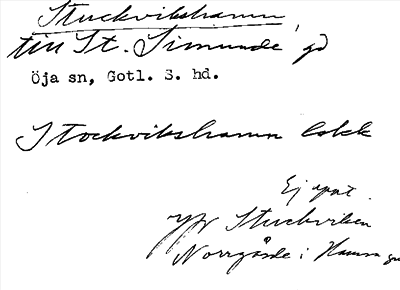 Stuckvikshamn
till St. Simunde, gd
Öja sn, Gotl. S. hd.
Stockvikshamn lokk
Ej upst.
Jfr Stuckviken
Norrgårde i Hamra sn